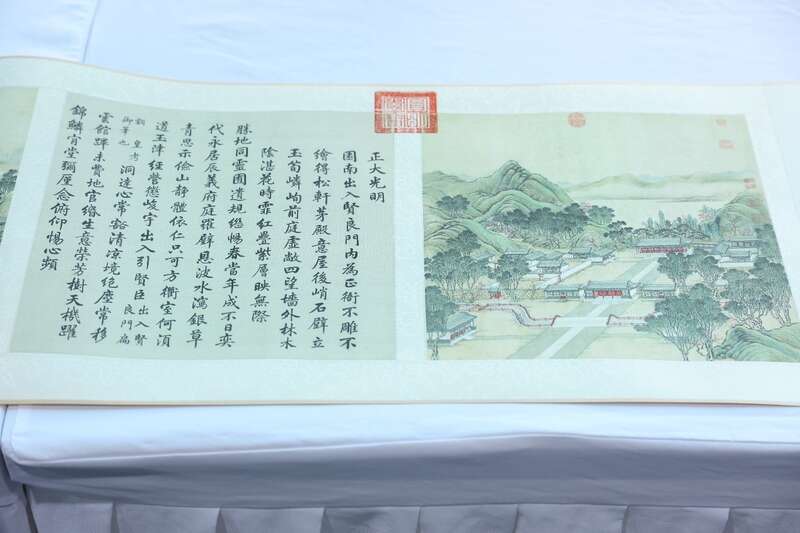 正大光明
園南出入賢良門內為正衙不雕不
繪得松軒茅殿意屋後峭石壁立
玉笋嶙峋前庭虛敞四望墻外林木
陰湛花時霏紅疊紫層映無際
勝地同靈囿遺規繼暢春當年成不日奕
代永居辰義府庭羅壁恩波水瀉銀草
青思示儉山靜體依仁只可方衢室何湏
道玉津經營懲峻宇出入引賢臣出入賢良門扁
額皇考御筆也洞達心常豁清凉境絕塵常移
雲館蹕未費地官緡生意榮芳樹天機躍
錦鱗肯堂彌厪念俯仰惕心頻